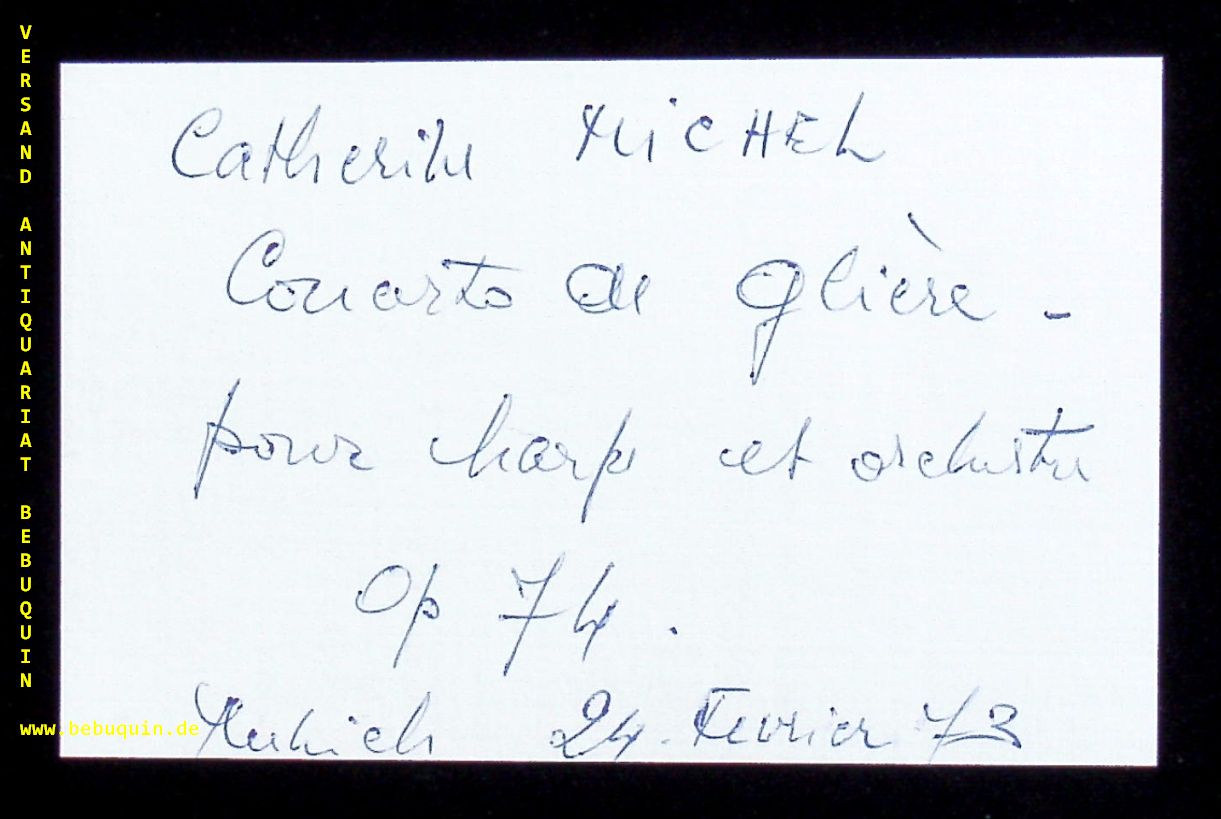 VERSAND ANTIQUARIAT BEBUQUIN
www.bebuquin.de
Catherine MICHEL
Concerto de Glière -
pour harpe et orchestre
Op 74.
Munich 24. Fevrier 73